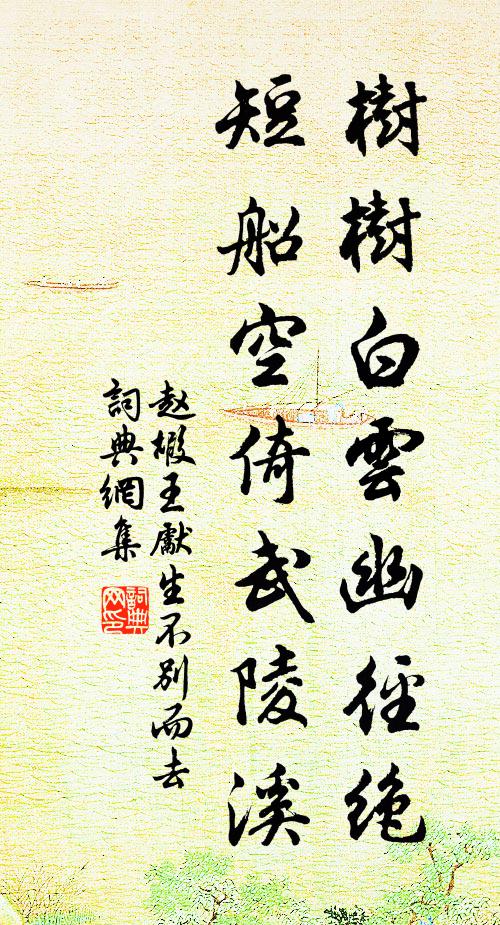 樹樹白雲幽徑絶
短船空倚武陵溪
赵嘏王獻生不別而去
詞典網集
詞典网印